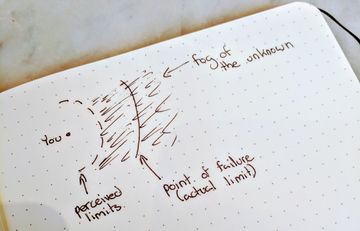 fog of
the unknown
You
perceived
limits
point of failure
(actual limit)